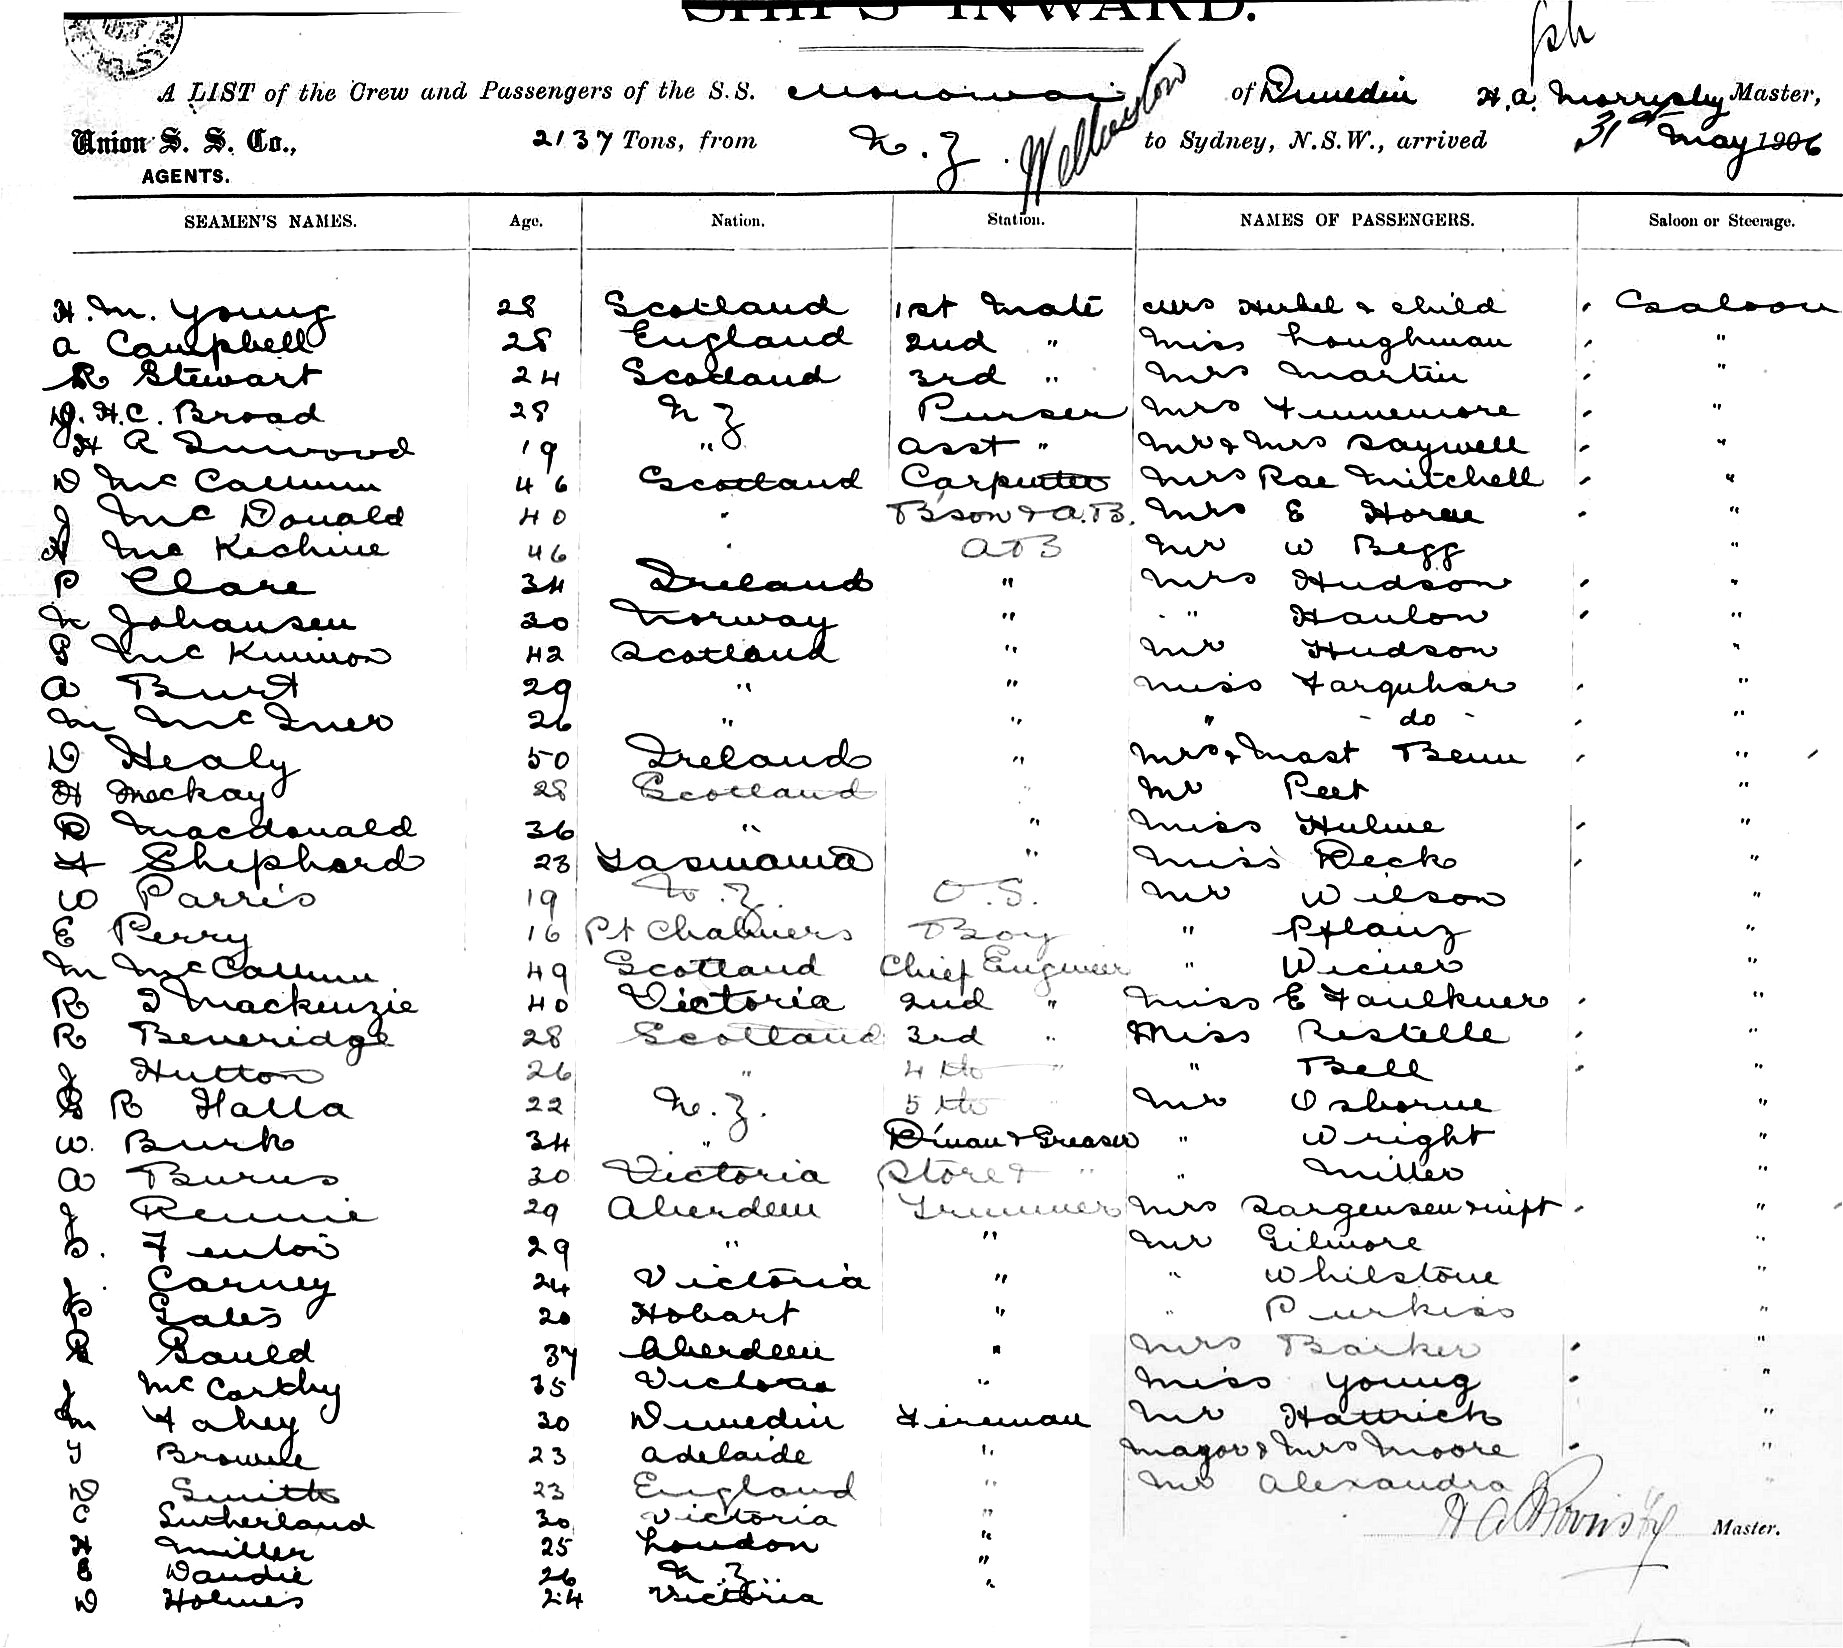 SHIPS INWARD.
A LIST of the Crew and Passengers of the S.S. Monowai of Dunedin H. A. Morrisby Master,
Union S. S. Co., 2137 Tons, from N. Z. Wellington to Sydney, N.S.W., arrived 31st May 1906
AGENTS.
SEAMEN'S NAMES. Age. Nation. Station. NAMES OF PASSENGERS. Saloon or Steerage.
H. M. Young 28 Scotland 1st Mate Mrs & child Saloon
A Campbell 28 England 2nd " Miss Loughman "
R Stewart 24 Scotland 3rd " Mrs Martin "
H.C. Broad 28 N Z Purser Mrs Finnemore "
H R Inwood 19 " Asst " Mr & Mrs Saywell "
D McCallum 46 Scotland Carpenter Mrs Rae Mitchell "
J McDonald 40 " B'son & A.B. Mrs E Horne "
A McKechine 46 " A B Mr W Begg "
P Clare 34 Ireland " Mrs Hudson "
N Johansen 30 Norway " " Hanlon "
P McKinnon 42 Scotland " Mr Hudson "
A Burt 29 " " Miss Farquhar "
M McIner 26 " " " - do - "
D Healy 50 Ireland " Mrs & Mast Benn "
H Mackay 28 Scotland " Mr Peet "
R Macdonald 36 " " Miss Hulme "
F Shephard 23 Tasmania " Miss Deck "
W Parris 19 N.Z. O.S. Mr Wilson "
E Perry 16 Pt Chalmers Boy " Pflanz "
M McCallum 49 Scotland Chief Engineer " Wiener "
R I Mackenzie 40 Victoria 2nd " Miss E Faulkner "
R Beveridge 28 Scotland 3rd " Miss Restelle "
J Hutton 26 " 4th " " Bell "
R Halla 22 N.Z. 5th " Mr Osborne "
W. Burk 34 " D'man & Greaser " Wright "
A Burns 30 Victoria Store & " " Miller "
J Rennie 29 Aberdeen Trimmer Mrs Sargensen & inft "
D. Fenton 29 " " Mr Gilmore "
J. Carney 24 Victoria " " Whilstone "
P Gates 20 Hobart " " Purkiss "
Gauld 37 Aberdeen " Mrs Barker "
J McCarthy 35 Victoria " Miss Young "
M Fahey 30 Dunedin Fireman Mr Hattrick "
T Browne 23 Adelaide " Magor & Mrs Moore "
D Smith 23 England " Mr Alexandra "
C Sutherland 30 Victoria "
H A Morrisby Master.
H Miller 25 London "
E Dandie 26 N Z "
D Holmes 24 Victoria "